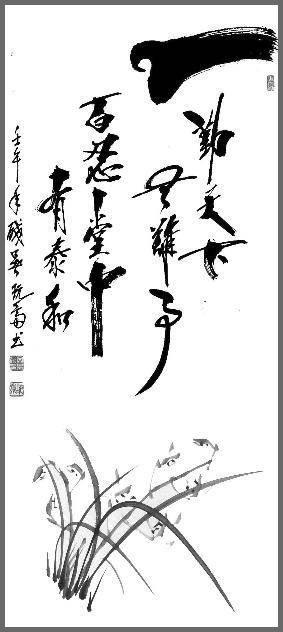 一
勤天下
無難事
百忍堂中
有泰和
壬午年 书